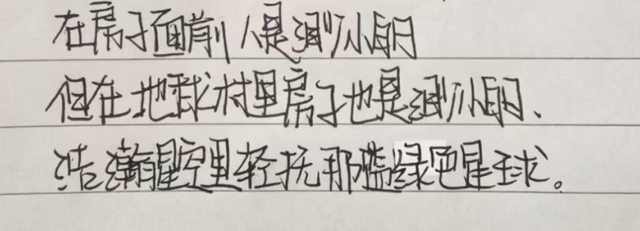 在房子面前人是渺小的
但在地球村里房子也是渺小的、
浩瀚星空里轻抚那蓝绿色星球。